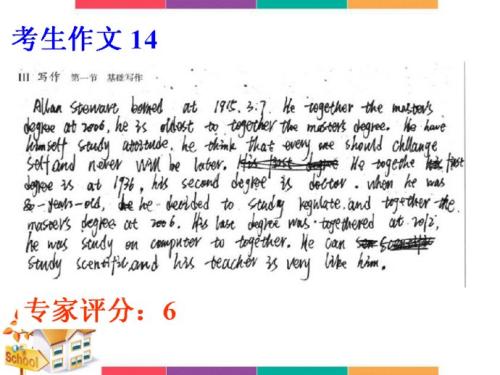 考生作文 14
III 写作 第一节 基础写作
Allan Stewart borned at 1915.3.7. He together the master's
degree at 2006, he is oldest to together the master's degree. He have
himself study attitude. he think that every one should challange
self and never will be later. He togethe his first
degree is at 1936, his second degree is doctor. when he was
80-years-old, he decided to study regulate. and together the
master's degree at 2006. His last degree was togethered at 2012,
he was study on computer to together. He can
study scentific. and his teacher is very like him.
专家评分：6
School